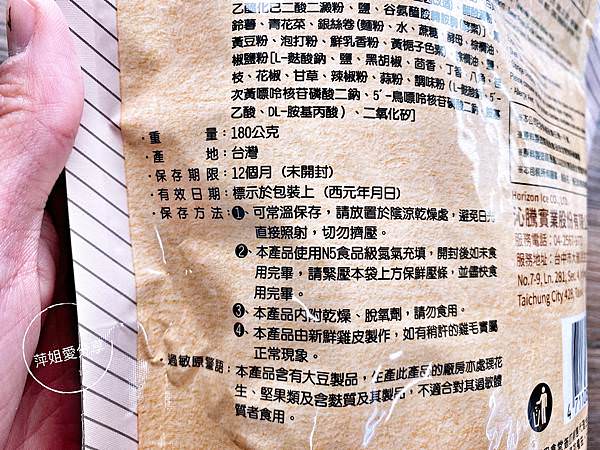 乙醯化己二酸二澱粉、鹽、谷氨醯胺
鈴薯、青花菜、銀絲卷(麵粉、水、蔗糖、酵母、棕櫚油、
黃豆粉、泡打粉、鮮乳香粉、黃梔子色素
椒鹽粉[L-麩酸鈉、鹽、黑胡椒、茴香、丁香
枝、花椒、甘草、辣椒粉、蒜粉、調味粉(L-麩酸鈉、5´-
次黃嘌呤核苷磷酸二鈉、5´-鳥嘌呤核苷磷酸二鈉、胺基
乙酸、DL-胺基丙酸)、二氧化矽]
・重 量：180公克
・產 地：台灣
・保存期限：12個月（未開封）
・有效日期：標示於包裝上（西元年月日）
・保存方法：❶、可常溫保存，請放置於陰涼乾燥處，避免日光
直接照射，切勿擠壓。
❷、本產品使用N5食品級氮氣充填，開封後如未食
用完畢，請緊壓本袋上方保鮮壓條，並儘快食
用完畢。
❸、本產品內附乾燥、脫氧劑，請勿食用。
❹、本產品由新鮮雞皮製作，如有稍許的雞毛實屬
正常現象。
・過敏原警語：本產品含有大豆製品，生產此產品的廠房亦處理花
生、堅果類及含麩質及其製品，不適合對其過敏體
質者食用。
Horizon Ice CO., Ltd.
沁騰實業股份有限
服務電話：04-2567
服務地址：台中市大雅
No.7-9, Ln. 281, Sec. 4,
Taichung City 428, Taiwan
萍姐愛分享